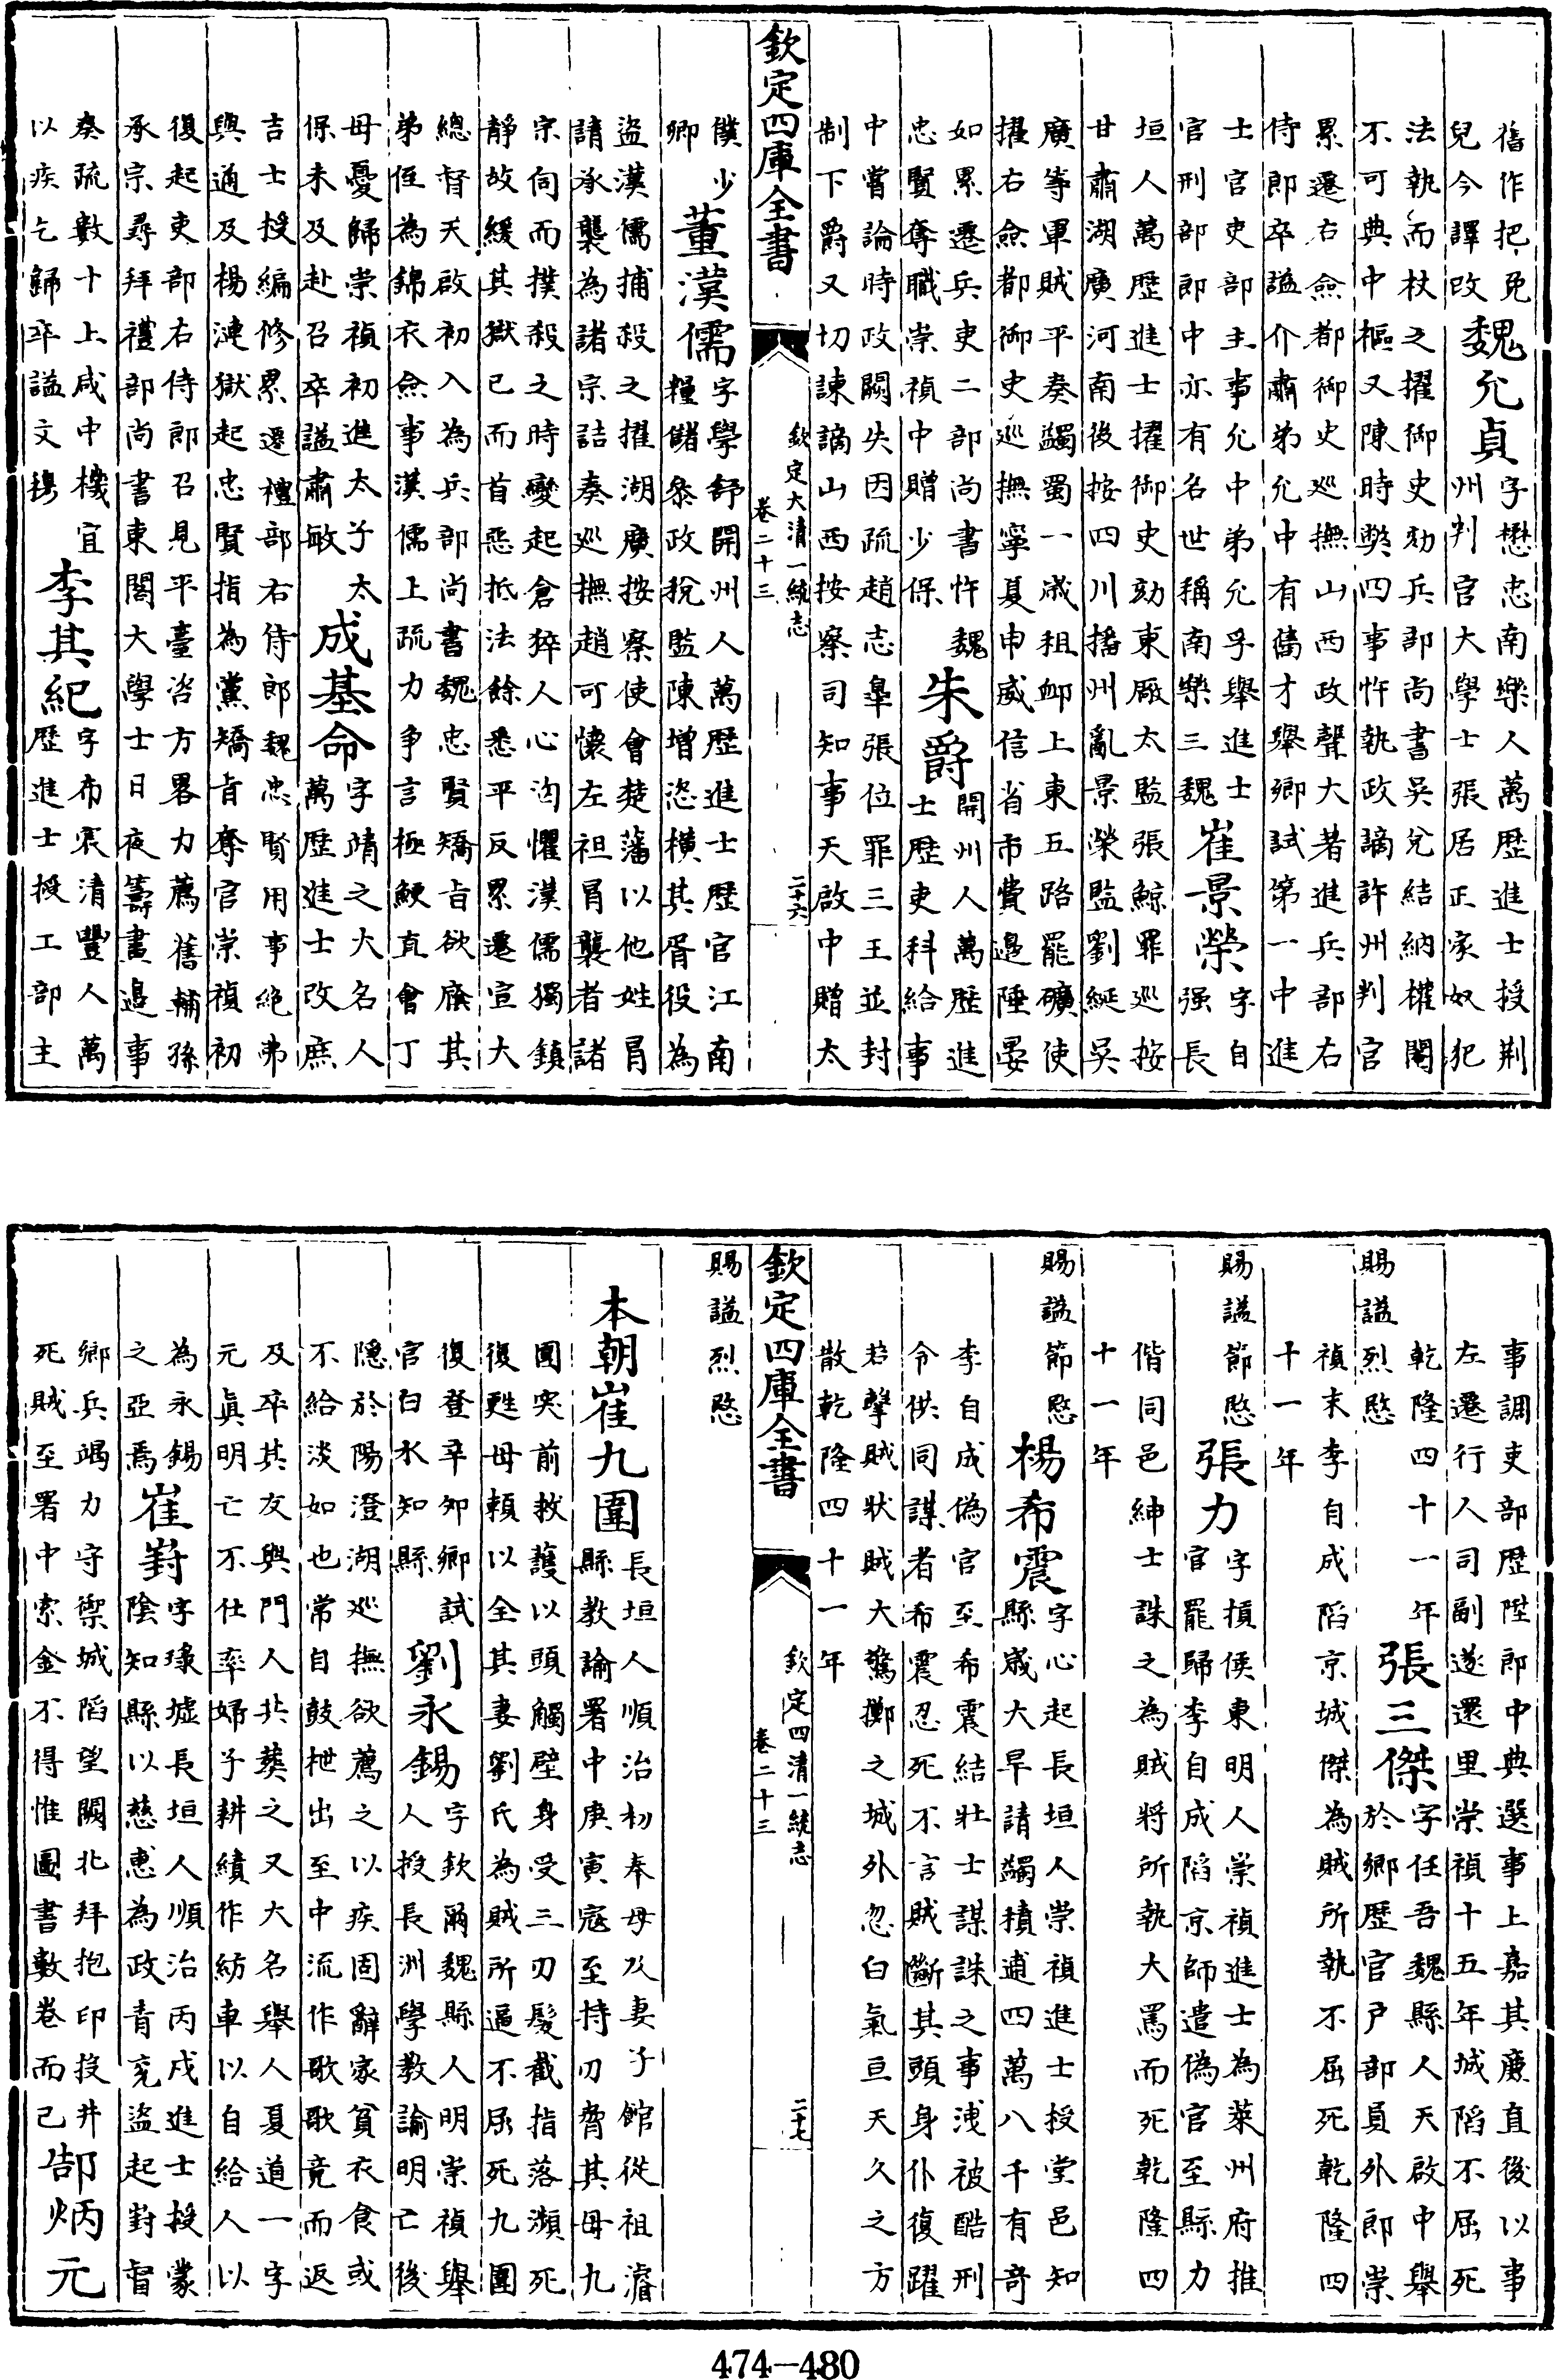 舊作把免
兒今譯改
魏允貞
字懋忠南樂人萬歷進士授荆
州判官大學士張居正家奴犯
法執而杖之擢御史劾兵部尚書吳兌結納權閹
不可典中樞又陳時弊四事忤執政謫許州判官
累遷右僉都御史巡撫山西政聲大著進兵部右
侍郎卒諡介肅弟允中有儁才舉鄉試第一中進
士官吏部主事允中弟允孚舉進士
官刑部郎中亦有名世稱南樂三魏
崔景榮
字自
强長
垣人萬歷進士擢御史劾東厰太監張鯨罪巡按
甘肅湖廣河南後按四川播州亂景榮監劉綎吳
廣等軍賊平奏蠲蜀一歲租卹上東五路罷礦使
擢右僉都御史巡撫寧夏申威信省市費邊陲晏
如累遷兵吏二部尚書忤魏
忠賢奪職崇禎中贈少保
朱爵
開州人萬歷進
士歷吏科給事
中嘗論時政闕失因疏趙志臯張位罪三王並封
制下爵又切諫謫山西按察司知事天啟中贈太
欽定四庫全書
欽定大清一統志
卷二十三
二十六
僕少
卿
董漢儒
字學舒開州人萬歷進士歷官江南
糧儲叅政稅監陳增恣橫其胥役為
盜漢儒捕殺之擢湖廣按察使會楚藩以他姓冒
請承襲為諸宗詰奏巡撫趙可懷左袒冒襲者諸
宗伺而撲殺之時變起倉猝人心洶懼漢儒獨鎮
靜故緩其獄已而首惡抵法餘悉平反累遷宣大
總督天啟初入為兵部尚書魏忠賢矯旨欲廕其
弟侄為錦衣僉事漢儒上疏力争言極鯁直會丁
母憂歸崇禎初進太子太
保未及赴召卒諡肅敏
成基命
字靖之大名人
萬歷進士改庶
吉士授編修累遷禮部右侍郎魏忠賢用事絶弗
與通及楊漣獄起忠賢指為黨矯旨奪官崇禎初
復起吏部右侍郎召見平臺咨方畧力薦舊輔孫
承宗尋拜禮部尚書東閣大學士日夜籌畫邊事
奏疏數十上咸中機宜
以疾乞歸卒諡文穆
李其紀
字布宸清豐人萬
歷進士授工部主
事調吏部歷陞郎中典選事上嘉其廉直後以事
左遷行人司副遂還里崇禎十五年城陷不屈死
乾隆四十一年
賜諡烈愍
張三傑
字任吾魏縣人天啟中舉
於鄉歷官戸部員外郎崇
禎末李自成陷京城傑為賊所執不屈死乾隆四
十一年
賜諡節愍
張力
字損偄東明人崇禎進士為萊州府推
官罷歸李自成陷京師遣偽官至縣力
偕同邑紳士誅之為賊將所執大罵而死乾隆四
十一年
賜諡節愍
楊希震
字心起長垣人崇禎進士授堂邑知
縣歲大旱請蠲積逋四萬八千有奇
李自成偽官至希震結壯士謀誅之事洩被酷刑
令供同謀者希震忍死不言賊斷其頭身仆復躍
若擊賊狀賊大驚擲之城外忽白氣亘天久之方
散乾隆四十一年
欽定四庫全書
欽定四清一統志
卷二十三
二十七
賜諡烈愍
本朝崔九圍
長垣人順治初奉母及妻子館從祖濬
縣教諭署中庚寅冦至持刃脅其母九
圍突前救護以頭觸壁身受三刃髮截指落瀕死
復甦母頼以全其妻劉氏為賊所逼不屈死九圍
復登辛夘鄉試
官白水知縣
劉永錫
字欽爾魏縣人明崇禎舉
人授長洲學教諭明亡後
隱於陽澄湖巡撫欲薦之以疾固辭家貧衣食或
不給淡如也常自鼓枻出至中流作歌歌竟而返
及卒其友與門人共葬之又大名舉人夏道一字
元眞明亡不仕率婦子耕績作紡車以自給人以
為永錫
之亞焉
崔對
字瑑墟長垣人順治丙戌進士授蒙
陰知縣以慈惠為政青兖盜起對督
鄉兵竭力守禦城陷望闕北拜抱印投井
死賊至署中索金不得惟圖書數卷而已
郜炳元
474-480